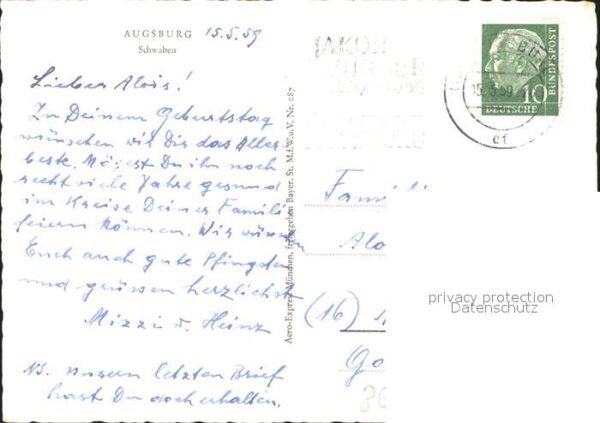 AUGSBURG 15.5.59
Schwaben
Lieber Alois!
Zu Deinem Geburtstag
wünschen wir Dir das Aller-
beste. Mögest Du ihn noch
recht viele Jahre gesund
im Kreise Deiner Famili
feiern können. Wir wünschen
Euch auch gute Pfingsten
und grüssen herzlichst
Mizzi u. Heinz
NB. unsern letzten Brief
hast Du doch erhalten.
Aero-Express München, freigegeben Bayer. St. M.f.W.u.V. Nr. G87
JAKOB
FUGGER
15.5.59
BUNDESPOST
10
DEUTSCHE
ef
Famili
Alo
(16)
Go
privacy protection
Datenschutz